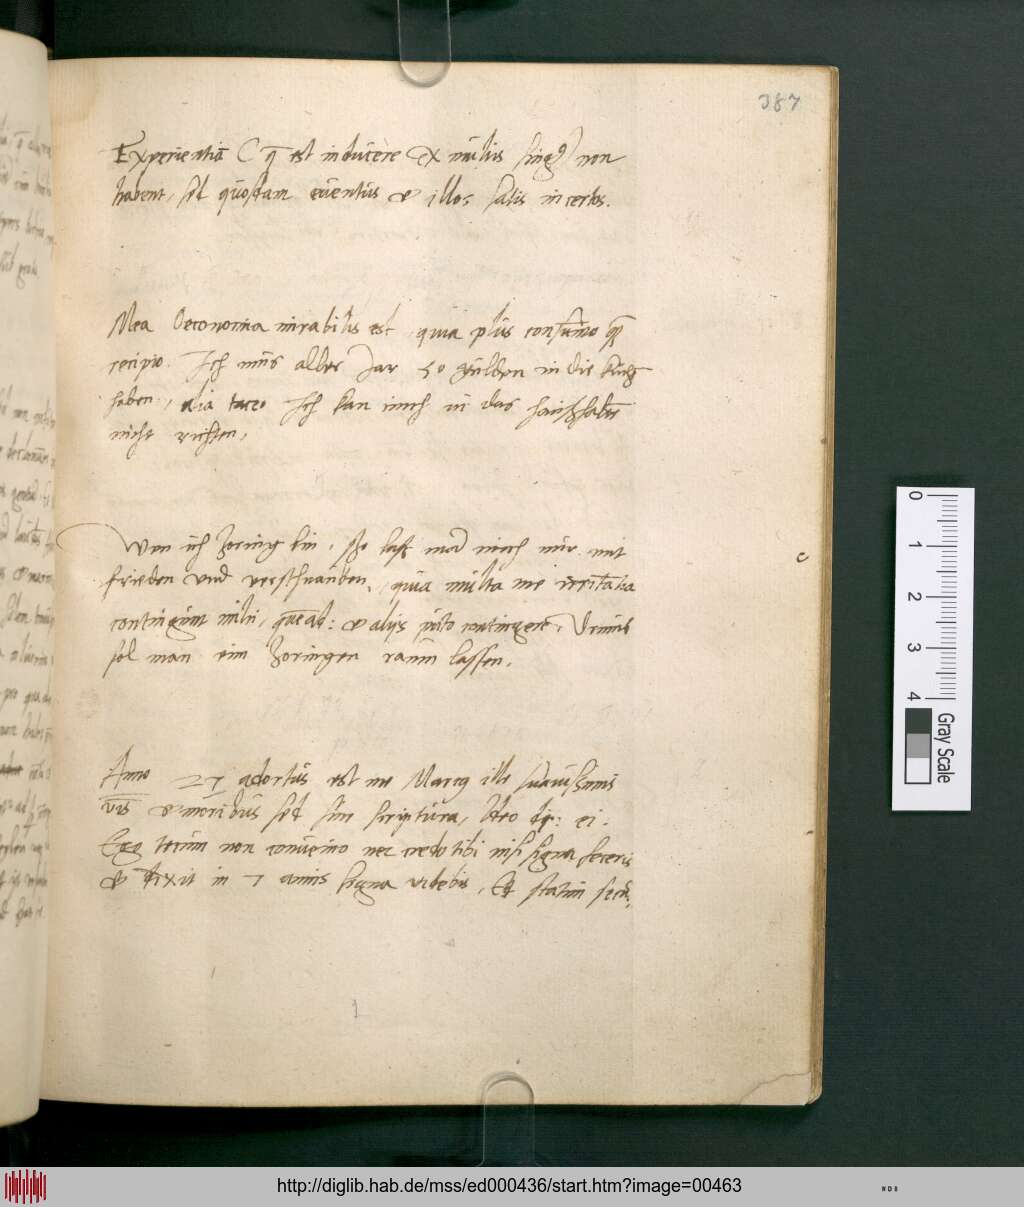 387
Experientia C q̄ est inducere ex multis sing non
habent, sed quosdam euentus et illos satis incertos.
Mea Oeconomia mirabilis est, quia plus consumo q̄
recipio. Ich mus alles Jar 50 gulden in die kuch
haben, alia taceo Ich kan mich in das haußhalten
nicht richten,
Wen ich zornig bin, so laß man mich nur mit
frieden vnd verschnauben, quia multa me irritantia
contingunt mihi, et alijs puto contingere, Drumb
sol man eim zornigen raum lassen,
Anno adortus est me Marcus ille suauissimis
et moribus sed sine scriptura, ideo ei.
Ego tecum non conuenio nec credo tibi nisi signa feceris
et dixit in 7 annis signa videbis, Et statim
0
1
2
3
4
Gray Scale
http://diglib.hab.de/mss/ed000436/start.htm?image=00463